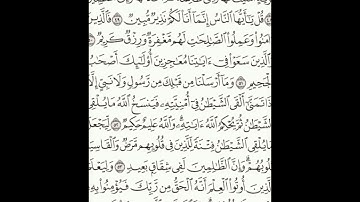 قُلْ يَٰٓأَيُّهَا ٱلنَّاسُ إِنَّمَآ أَنَا۠ لَكُمْ نَذِيرٌ مُّبِينٌ ٤٩ فَٱلَّذِينَ
ءَامَنُوا۟ وَعَمِلُوا۟ ٱلصَّٰلِحَٰتِ لَهُم مَّغْفِرَةٌ وَرِزْقٌ كَرِيمٌ ٥٠
وَٱلَّذِينَ سَعَوْا۟ فِىٓ ءَايَٰتِنَا مُعَٰجِزِينَ أُو۟لَٰٓئِكَ أَصْحَٰبُ
ٱلْجَحِيمِ ٥١ وَمَآ أَرْسَلْنَا مِن قَبْلِكَ مِن رَّسُولٍ وَلَا نَبِىٍّ إِلَّآ
إِذَا تَمَنَّىٰٓ أَلْقَى ٱلشَّيْطَٰنُ فِىٓ أُمْنِيَّتِهِۦ فَيَنسَخُ ٱللَّهُ مَا يُلْقِى
ٱلشَّيْطَٰنُ ثُمَّ يُحْكِمُ ٱللَّهُ ءَايَٰتِهِۦ وَٱللَّهُ عَلِيمٌ حَكِيمٌ ٥٢ لِّيَجْعَلَ
مَا يُلْقِى ٱلشَّيْطَٰنُ فِتْنَةً لِّلَّذِينَ فِى قُلُوبِهِم مَّرَضٌ وَٱلْقَاسِيَةِ
قُلُوبُهُمْ وَإِنَّ ٱلظَّٰلِمِينَ لَفِى شِقَاقٍۭ بَعِيدٍ ٥٣ وَلِيَعْلَمَ
ٱلَّذِينَ أُوتُوا۟ ٱلْعِلْمَ أَنَّهُ ٱلْحَقُّ مِن رَّبِّكَ فَيُؤْمِنُوا۟ بِهِۦ